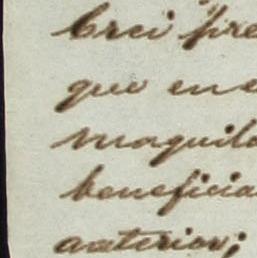 Creí fire
que en e
maquila
beneficia
anterior;